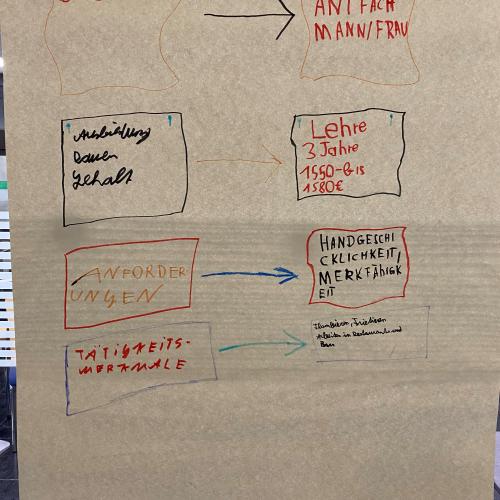 ANTFACH
MANN/FRAU
Ausbildung
Dauer
Gehalt
Lehre
3 Jahre
1550-Bis
1580€
ANFORDER
UNGEN
HANDGESCHI
CKLICHKEIT,
MERKFÄHIGK
EIT
TÄTIGKEITS-
MERKMALE
Flambieren, Frittieren
Arbeiten in Restaurant und